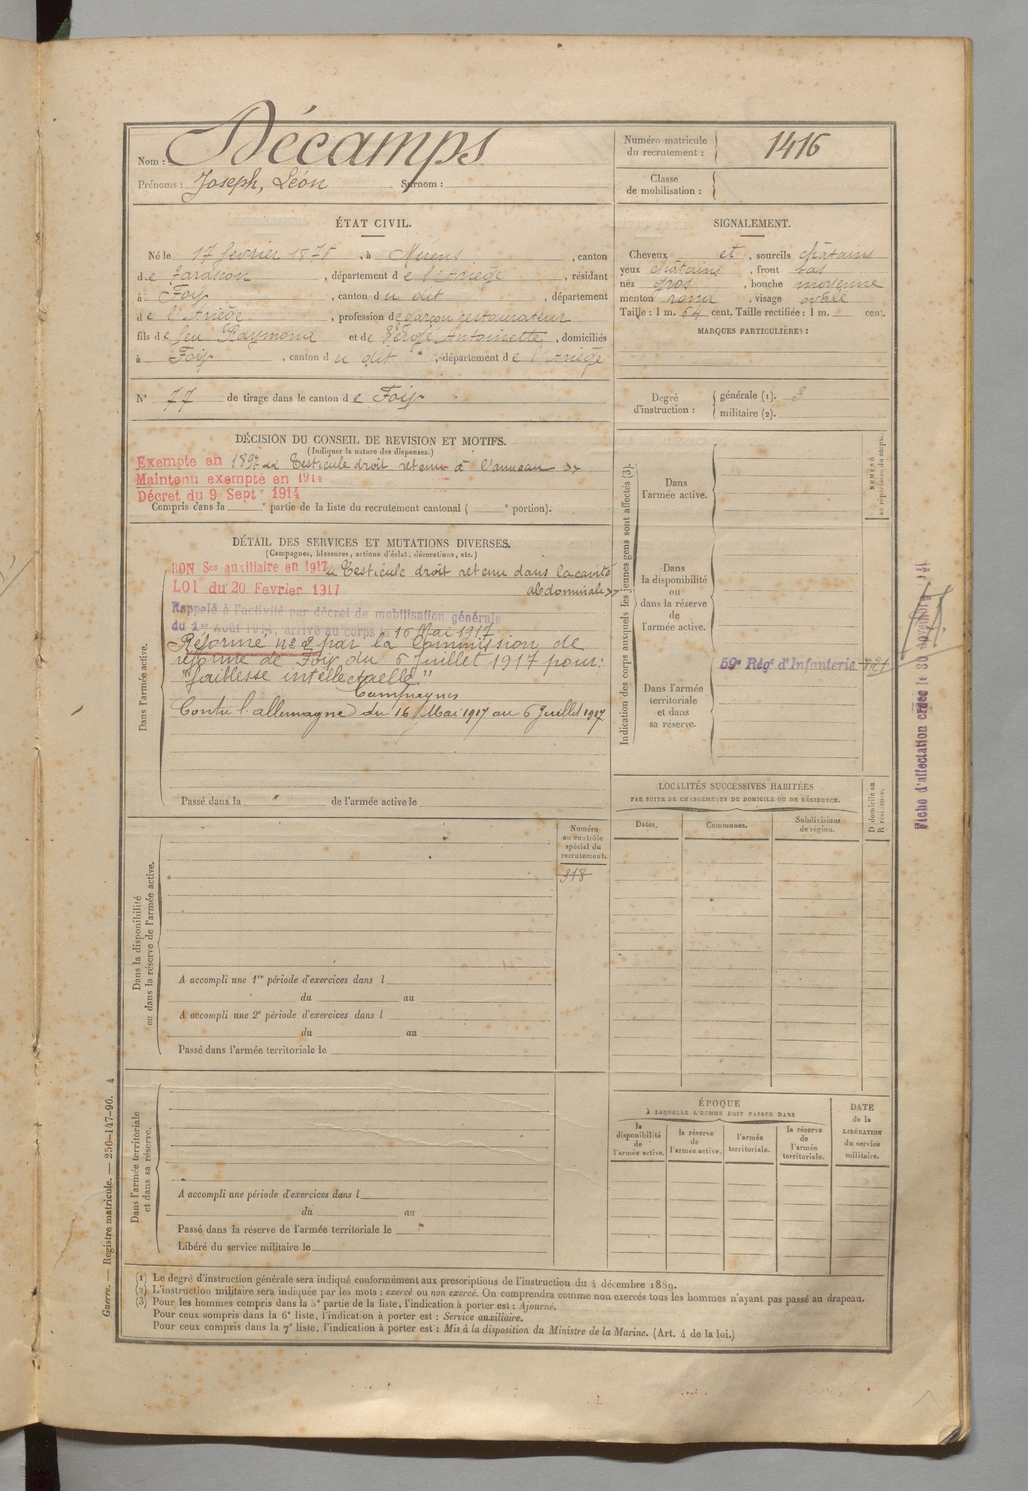 Nom : Décamps
Prénoms : Joseph, Léon Surnom :
Numéro matricule du recrutement : 1416
Classe de mobilisation :
ÉTAT CIVIL.
Né le 17 février 1875, à Merens, canton
de Tarascon, département de l'Ariège, résidant
à Foix, canton du dit, département
de l'Ariège, profession de garçon restaurateur
fils de feu Raymond et de Antoinette, domiciliés
à Foix, canton du dit, département de l'Ariège
N° 77 de tirage dans le canton de Foix
SIGNALEMENT.
Cheveux et, sourcils châtains
yeux châtains, front bas
nez gros, bouche moyenne
menton rond, visage ovale
Taille : 1 m. 64 cent. Taille rectifiée : 1 m. cent.
MARQUES PARTICULIÈRES :
Degré d'instruction : générale (1). 3
militaire (2).
DÉCISION DU CONSEIL DE REVISION ET MOTIFS.
(Indiquer la nature des dispenses.)
Exempté en 1897 Testicule droit retenu à l'anneau
Maintenu exempté en 1914
Décret du 9 Septe 1914
Compris dans la e partie de la liste du recrutement cantonal ( e portion).
DÉTAIL DES SERVICES ET MUTATIONS DIVERSES.
(Campagnes, blessures, actions d'éclat, décorations, etc.)
Dans l'armée active.
BON Sce auxiliaire en 1917 Testicule droit retenu dans la cavité
LOI du 20 Fevrier 1917 abdominale
Rappelé à l'activité par décret de mobilisation générale
du 1er Août 1914, arrivé au corps le 16 Mai 1917
Réformé n° 2 par la Commission de
réforme de Foix du 6 Juillet 1917 pour :
"faiblesse intellectuelle."
Campagnes
Contre l'allemagne du 16 Mai 1917 au 6 Juillet 1917
Passé dans la " de l'armée active le
Indication des corps auxquels les jeunes gens sont affectés (3).
NUMÉRO au répertoire du corps.
Dans l'armée active.
Dans la disponibilité ou dans la réserve de l'armée active.
Dans l'armée territoriale et dans sa réserve.
59e Régt d'Infanterie
Fiche d'affectation créée le 30 novembre
LOCALITÉS SUCCESSIVES HABITÉES
PAR SUITE DE CHANGEMENTS DE DOMICILE OU DE RÉSIDENCE.
Dates. Communes. Subdivisions de région.
D. domicile ou R. résidence.
Dans la disponibilité ou dans la réserve de l'armée active.
Numéro au contrôle spécial du recrutement.
318
A accompli une 1re période d'exercices dans l
du au
A accompli une 2e période d'exercices dans l
du au
Passé dans l'armée territoriale le
Dans l'armée territoriale et dans sa réserve.
A accompli une période d'exercices dans l
du au
Passé dans la réserve de l'armée territoriale le
Libéré du service militaire le
ÉPOQUE
À LAQUELLE L'HOMME DOIT PASSER DANS
la disponibilité de l'armée active.
la réserve de l'armée active.
l'armée territoriale.
la réserve de l'armée territoriale.
DATE de la LIBÉRATION du service militaire.
Guerre. — Registre matricule. — 256-147-96. 4
(1) Le degré d'instruction générale sera indiqué conformément aux prescriptions de l'instruction du 4 décembre 1889.
(2) L'instruction militaire sera indiquée par les mots : exercé ou non exercé. On comprendra comme non exercés tous les hommes n'ayant pas passé au drapeau.
(3) Pour les hommes compris dans la 5e partie de la liste, l'indication à porter est : Ajourné.
Pour ceux compris dans la 6e liste, l'indication à porter est : Service auxiliaire.
Pour ceux compris dans la 7e liste, l'indication à porter est : Mis à la disposition du Ministre de la Marine. (Art. 4 de la loi.)